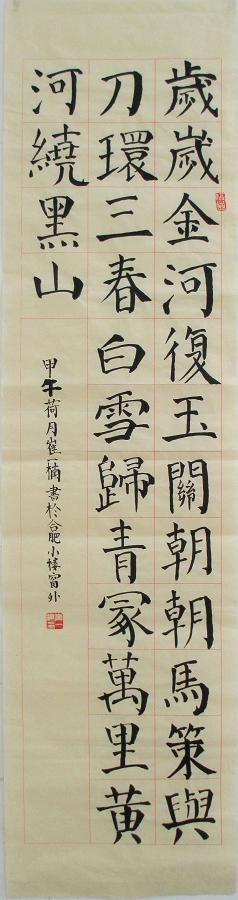 歲歲金河復玉關朝朝馬策與
刀環三春白雪歸青冢萬里黃
河繞黑山
甲午荷月崔一楠書於合肥小楼窗外